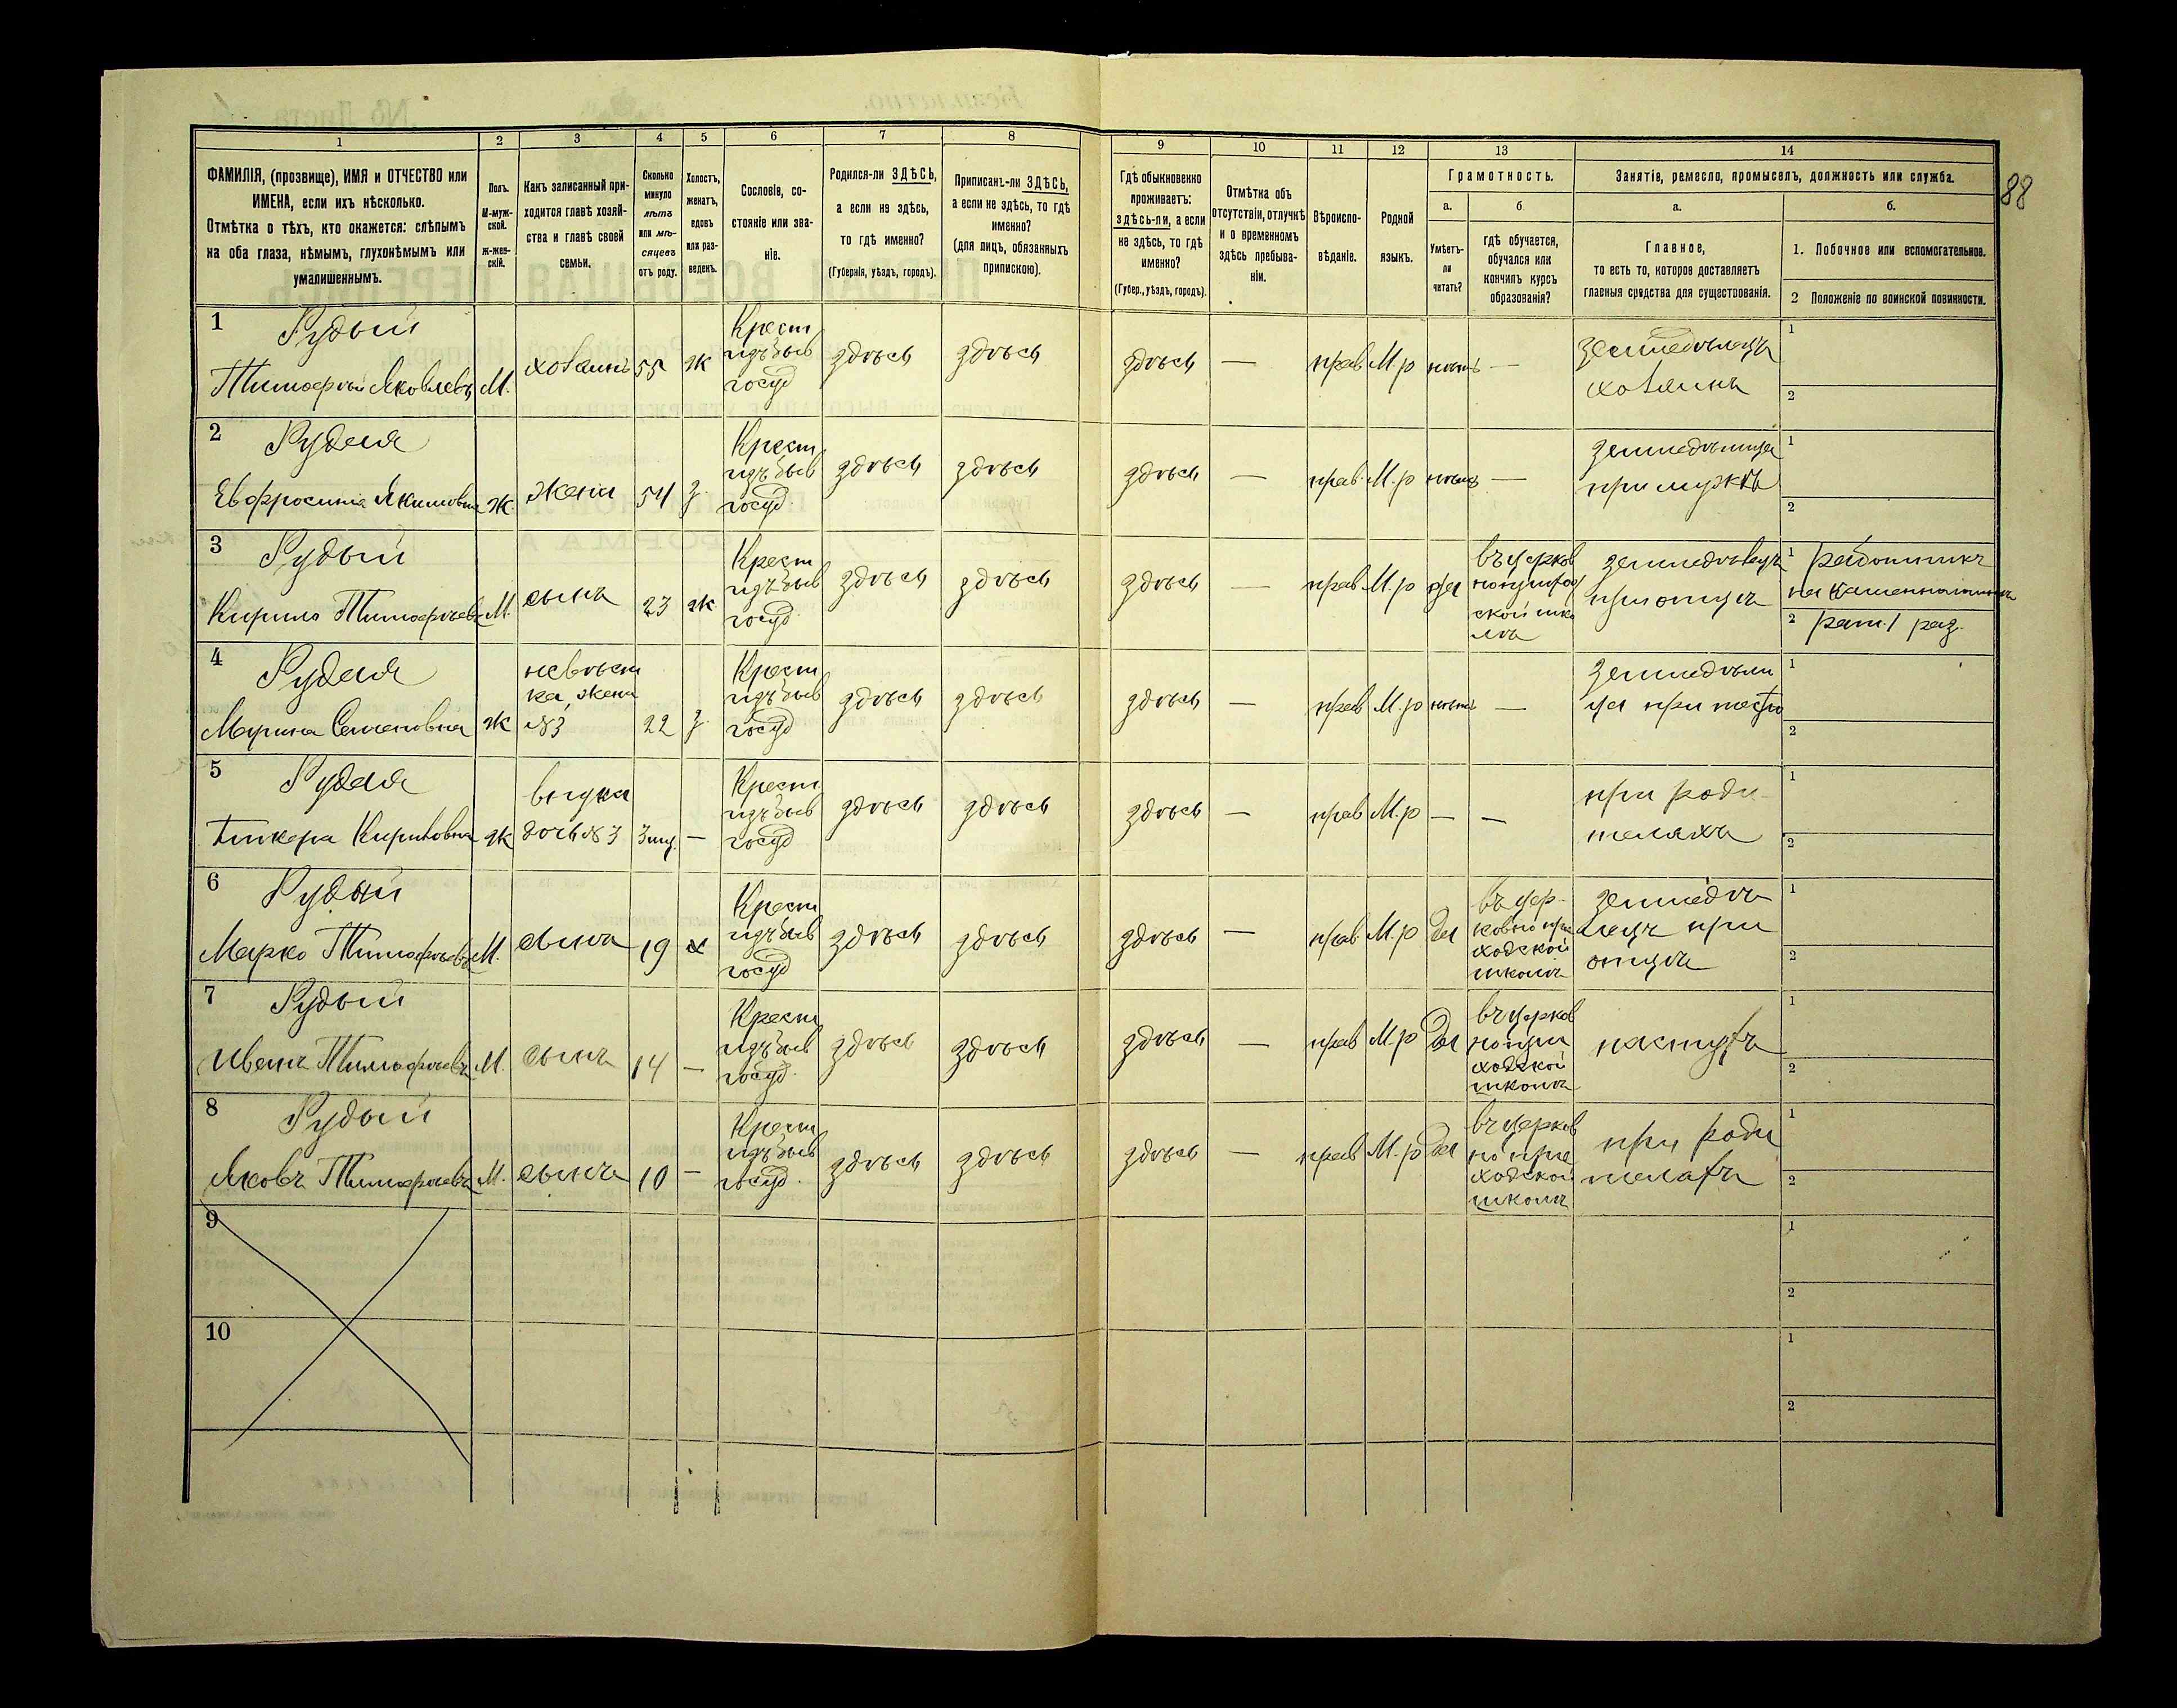 88
1
2
3
4
5
6
7
8
9
10
11
12
13
14
ФАМИЛІЯ, (прозвище), ИМЯ и ОТЧЕСТВО или
ИМЕНА, если ихъ нѣсколько.
Отмѣтка о тѣхъ, кто окажется: слѣпымъ
на оба глаза, нѣмымъ, глухонѣмымъ или
умалишеннымъ.
Полъ.
М-муж-
ской.
Ж-жен-
скій.
Какъ записанный при-
ходится главѣ хозяй-
ства и главѣ своей
семьи.
Сколько
минуло
лѣтъ
или мѣ-
сяцевъ
отъ роду.
Холостъ,
женатъ,
вдовъ
или раз-
веденъ.
Сословіе, со-
стояніе или зва-
ніе.
Родился-ли ЗДѢСЬ,
а если не здѣсь,
то гдѣ именно?
(Губернія, уѣздъ, городъ).
Приписанъ-ли ЗДѢСЬ,
а если не здѣсь, то гдѣ
именно?
(для лицъ, обязанныхъ
припискою).
Гдѣ обыкновенно
проживаетъ:
здѣсь-ли, а если
не здѣсь, то гдѣ
именно?
(Губер., уѣздъ, городъ).
Отмѣтка объ
отсутствіи, отлучкѣ
и о временномъ
здѣсь пребыва-
ніи.
Вѣроиспо-
вѣданіе.
Родной
языкъ.
Грамотность.
а.
Умѣетъ-
ли
читать?
б
гдѣ обучается,
обучался или
кончилъ курсъ
образованія?
Занятіе, ремесло, промыселъ, должность или служба.
а.
Главное,
то есть то, которое доставляетъ
главныя средства для существованія.
б.
1. Побочное или вспомогательное.
2 Положеніе по воинской повинности.
1
Рудый
Тимофѣй Яковлевъ
М.
хозаинъ
55
ж
Крест
изъ быв
госуд
здѣсь
здѣсь
здѣсь
—
прав
М.р
нѣтъ
—
землѣделецъ
хозяинъ
1
2
2
Рудая
Евфросинія Якимовна
ж.
жена
54
з.
Крест
изъ быв
госуд.
здѣсь
здѣсь
здѣсь
—
прав.
М.р
нѣтъ
—
земледѣлица
при мужѣ
1
2
3
Рудый
Кирило Тимофѣевъ
М.
сынъ
23
ж.
Крест
изъ быв
госуд.
здѣсь
здѣсь
здѣсь
—
прав.
М.р
да
въ церков
ноприход
ской шко
лѣ
земледѣлецъ
при отцѣ
1 работникъ
2 рат. 1 раз.
4
Рудая
Марина Семеновна
ж
невѣст
ка, жена
№3
22
з.
Крест
изъ быв
госуд
здѣсь
здѣсь
здѣсь
—
прав
М.р
нѣтъ
—
земледѣли
ца при
1
2
5
Рудая
Кириловна
ж
внука
дочь №3
3 мц.
—
Крест
изъ быв
госуд
здѣсь
здѣсь
здѣсь
—
прав
М.р
—
—
при роди-
теляхъ
1
2
6
Рудый
Марко Тимофѣевъ
М.
сынъ
19
х
Крест
изъ быв
госуд
здѣсь
здѣсь
здѣсь
—
прав.
М.р
да
въ цер-
ковно при
ходской
школѣ
земледѣ
лецъ при
отцѣ
1
2
7
Рудый
Иванъ Тимофѣевъ
М.
сынъ
14
—
Крест
изъ быв
госуд.
здѣсь
здѣсь
здѣсь
—
прав
М.р
да
въ церков
нопри
ходской
школѣ
пастухъ
1
2
8
Рудый
Яковъ Тимофѣевъ
М.
сынъ
10
—
Крест
изъ быв
госуд.
здѣсь
здѣсь
здѣсь
—
прав
М.р
да
въ церков
но при
ходской
школѣ
при роди
телахъ
1
2
9
1
2
10
1
2